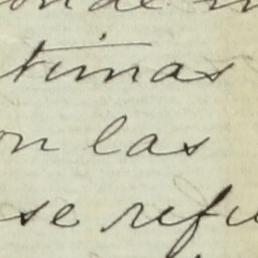 onde
timas
on las
se refu